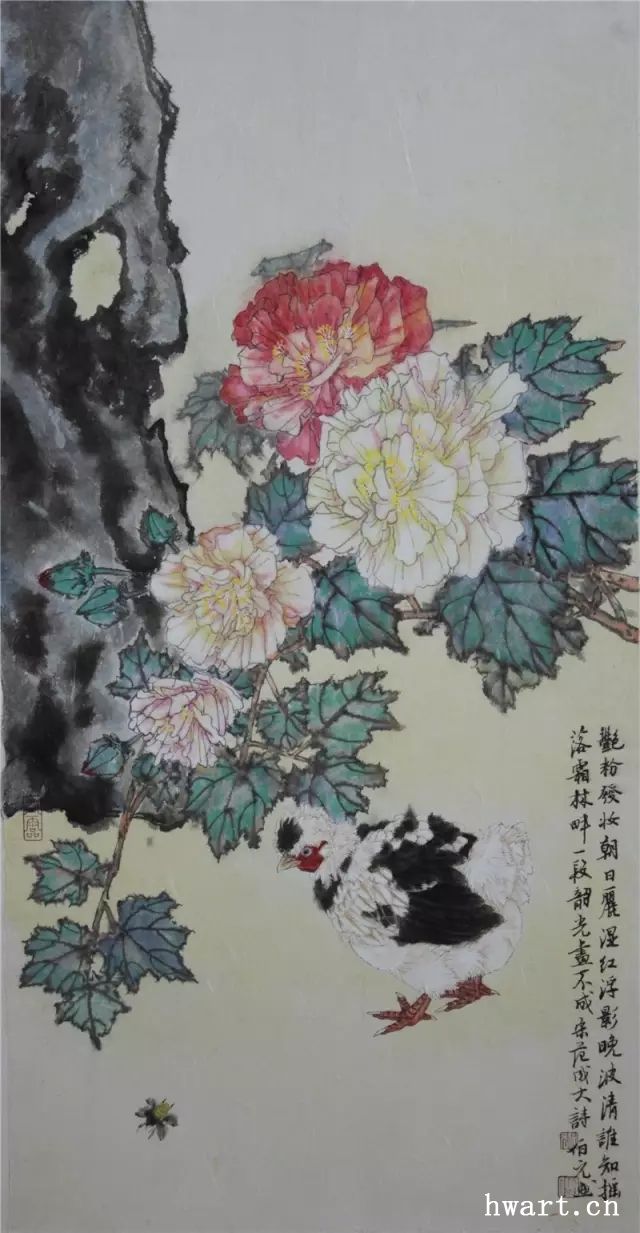 艷粉發妝朝日麗湿红浮影晚波清誰知摇
落霜林畔一段韶光畫不成宋范成大詩 伯元
hwart.cn